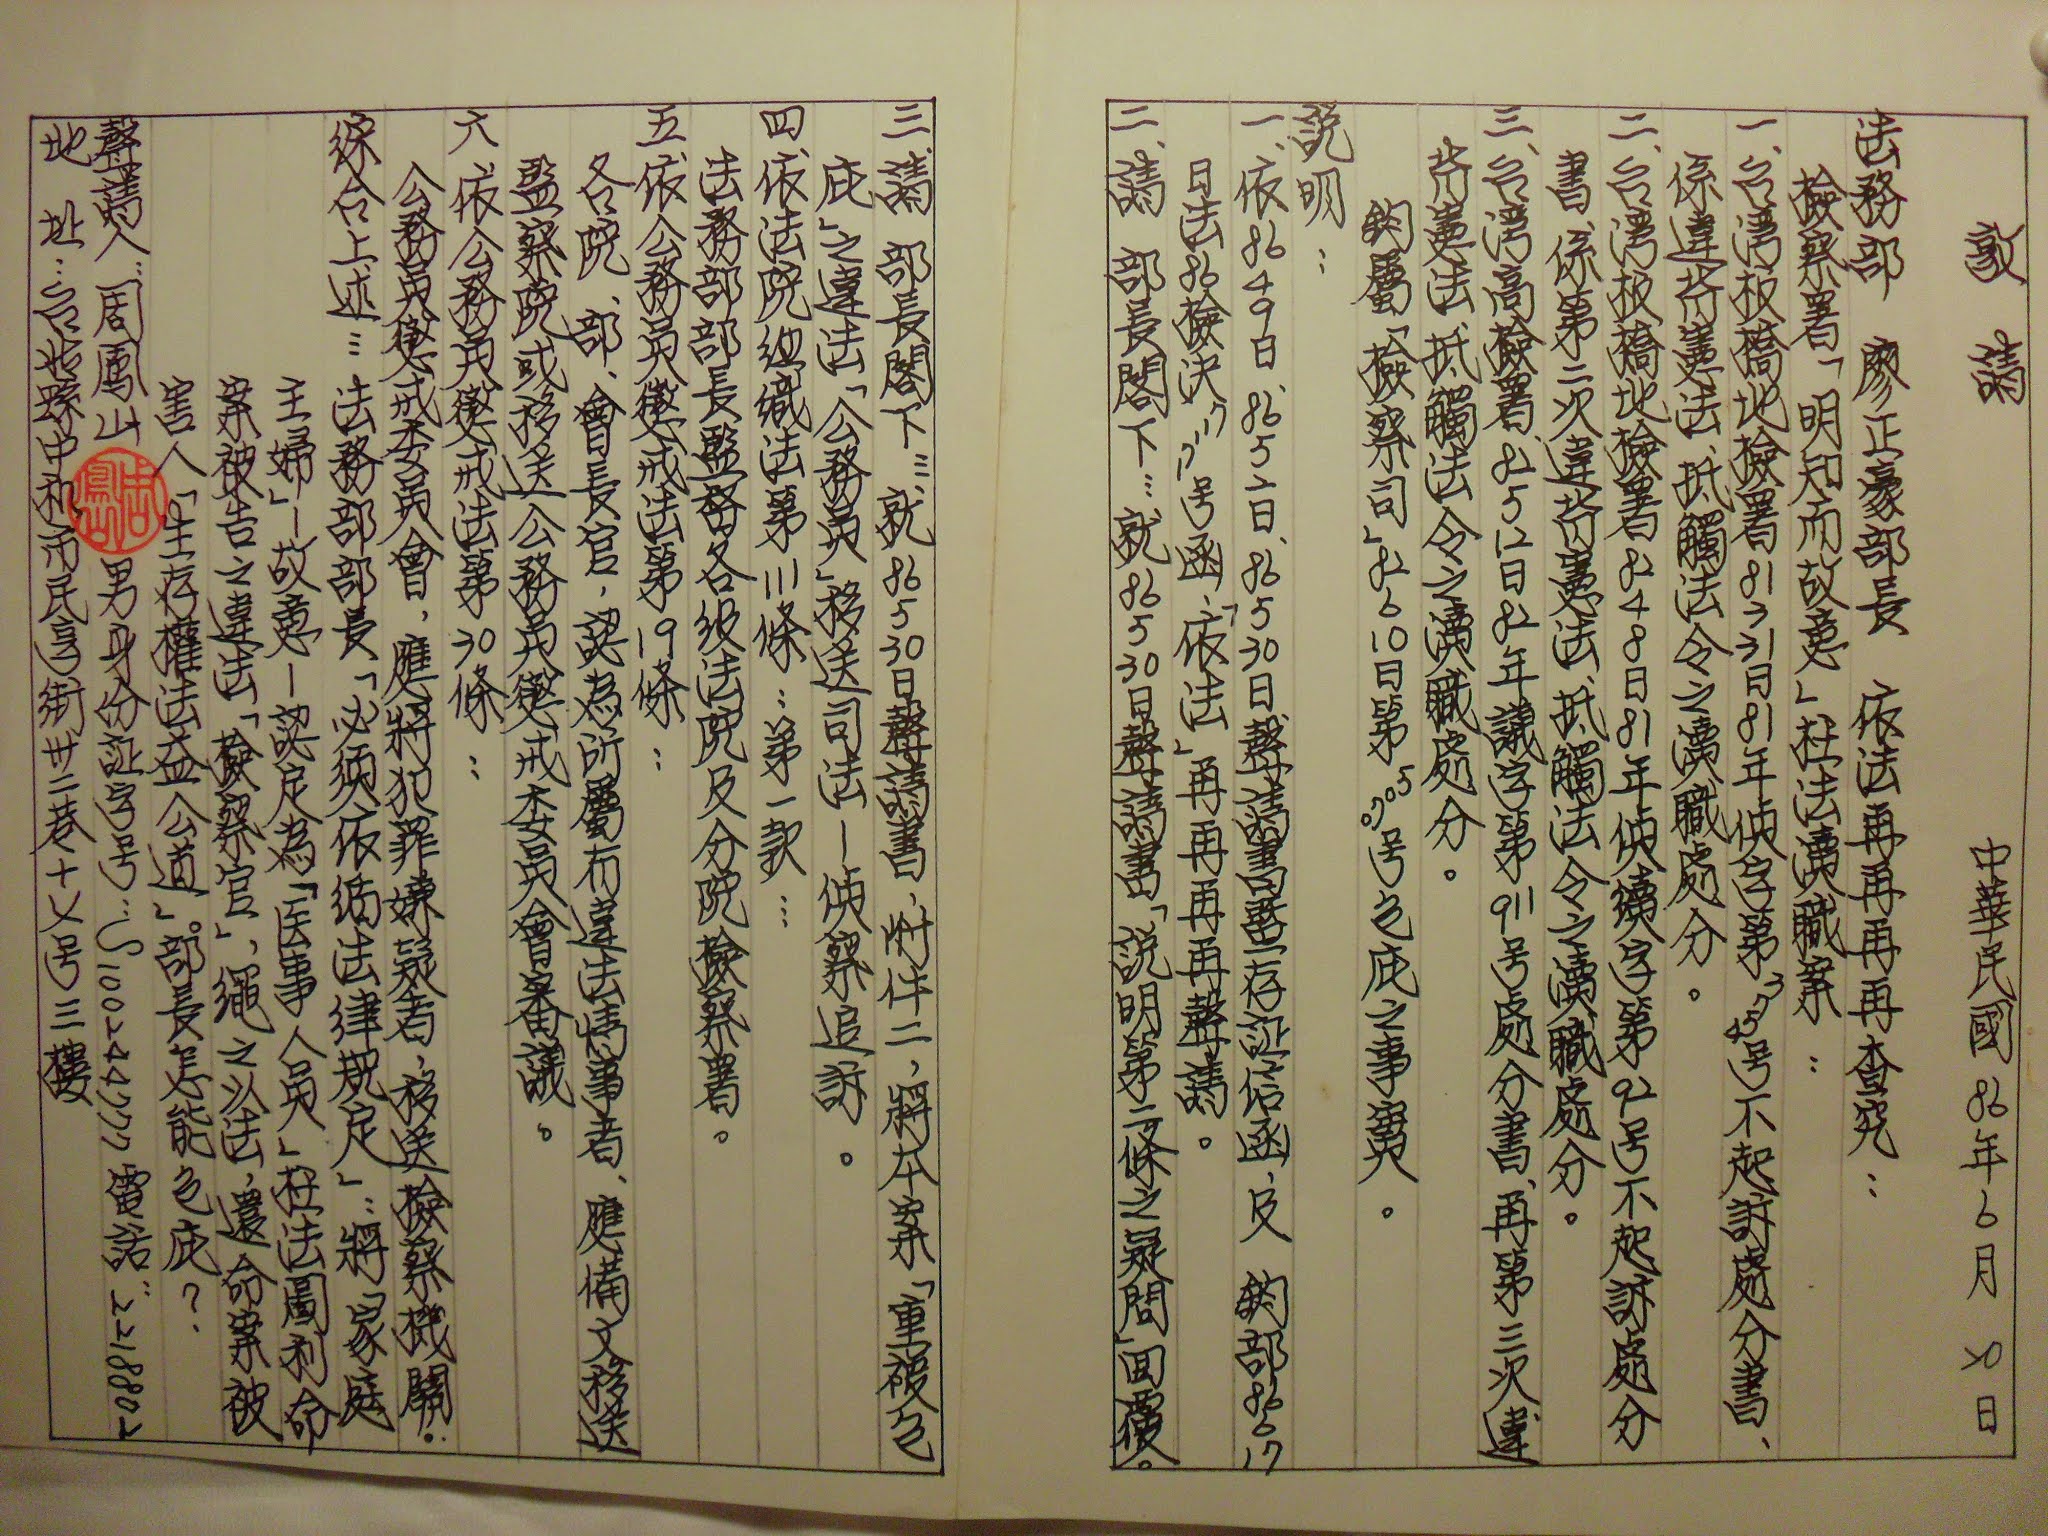 敬請 中華民國86年6月20日
法務部 廖正豪部長 依法再再再再查究：
檢察署「明知而故意」枉法瀆職案：
一、台湾板橋地檢署81 3 31日81年偵字第3745号不起訴處分書、
係違背憲法、抵觸法令之瀆職處分。
二、台湾板橋地檢署82 4 8日81年偵續字第92号不起訴處分
書、係第二次違背憲法、抵觸法令之瀆職處分。
三、台湾高檢署、82 5 12日82年議字第911号處分書、再第三次違
背憲法、抵觸法令之瀆職處分。
鈞屬「檢察司」82 6 10日第05705号包庇之事實。
說明：
一、依86 4 9日、86 5 2日、86 5 30日聲請書暨存証信函，及 鈞部86 6 17
日法86檢決 号函，「依法」再再再再再聲請。
二、請 部長閣下…就86 5 30日聲請書「說明第二條之疑問」回覆。
三、請 部長閣下…就86 5 30日聲請書、附件二，將本案「重複包
庇」之違法「公務員」移送司法—偵察追訴。
四、依法院組織法第111條：第一款…
法務部部長監督各級法院及分院檢察署。
五、依公務員懲戒法第19條：
各院、部、會長官，認為所屬有違法情事者、應備文移送
監察院或移送公務員懲戒委員會審議。
六、依公務員懲戒法第30條：
公務員懲戒委員會，應將犯罪嫌疑者，移送檢察機關。
綜合上述…法務部部長「必須依循法律規定」：將「家庭
主婦」—故意—認定為「医事人員」枉法圖利命
案被告之違法「檢察官」，繩之以法，還命案被
害人「生存權法益公道」。部長怎能包庇？
聲請人：周鳳山 男身份証字号：S100244777 電話：2218802
地 址：台北縣中和市民享街卅二巷十乂号三樓